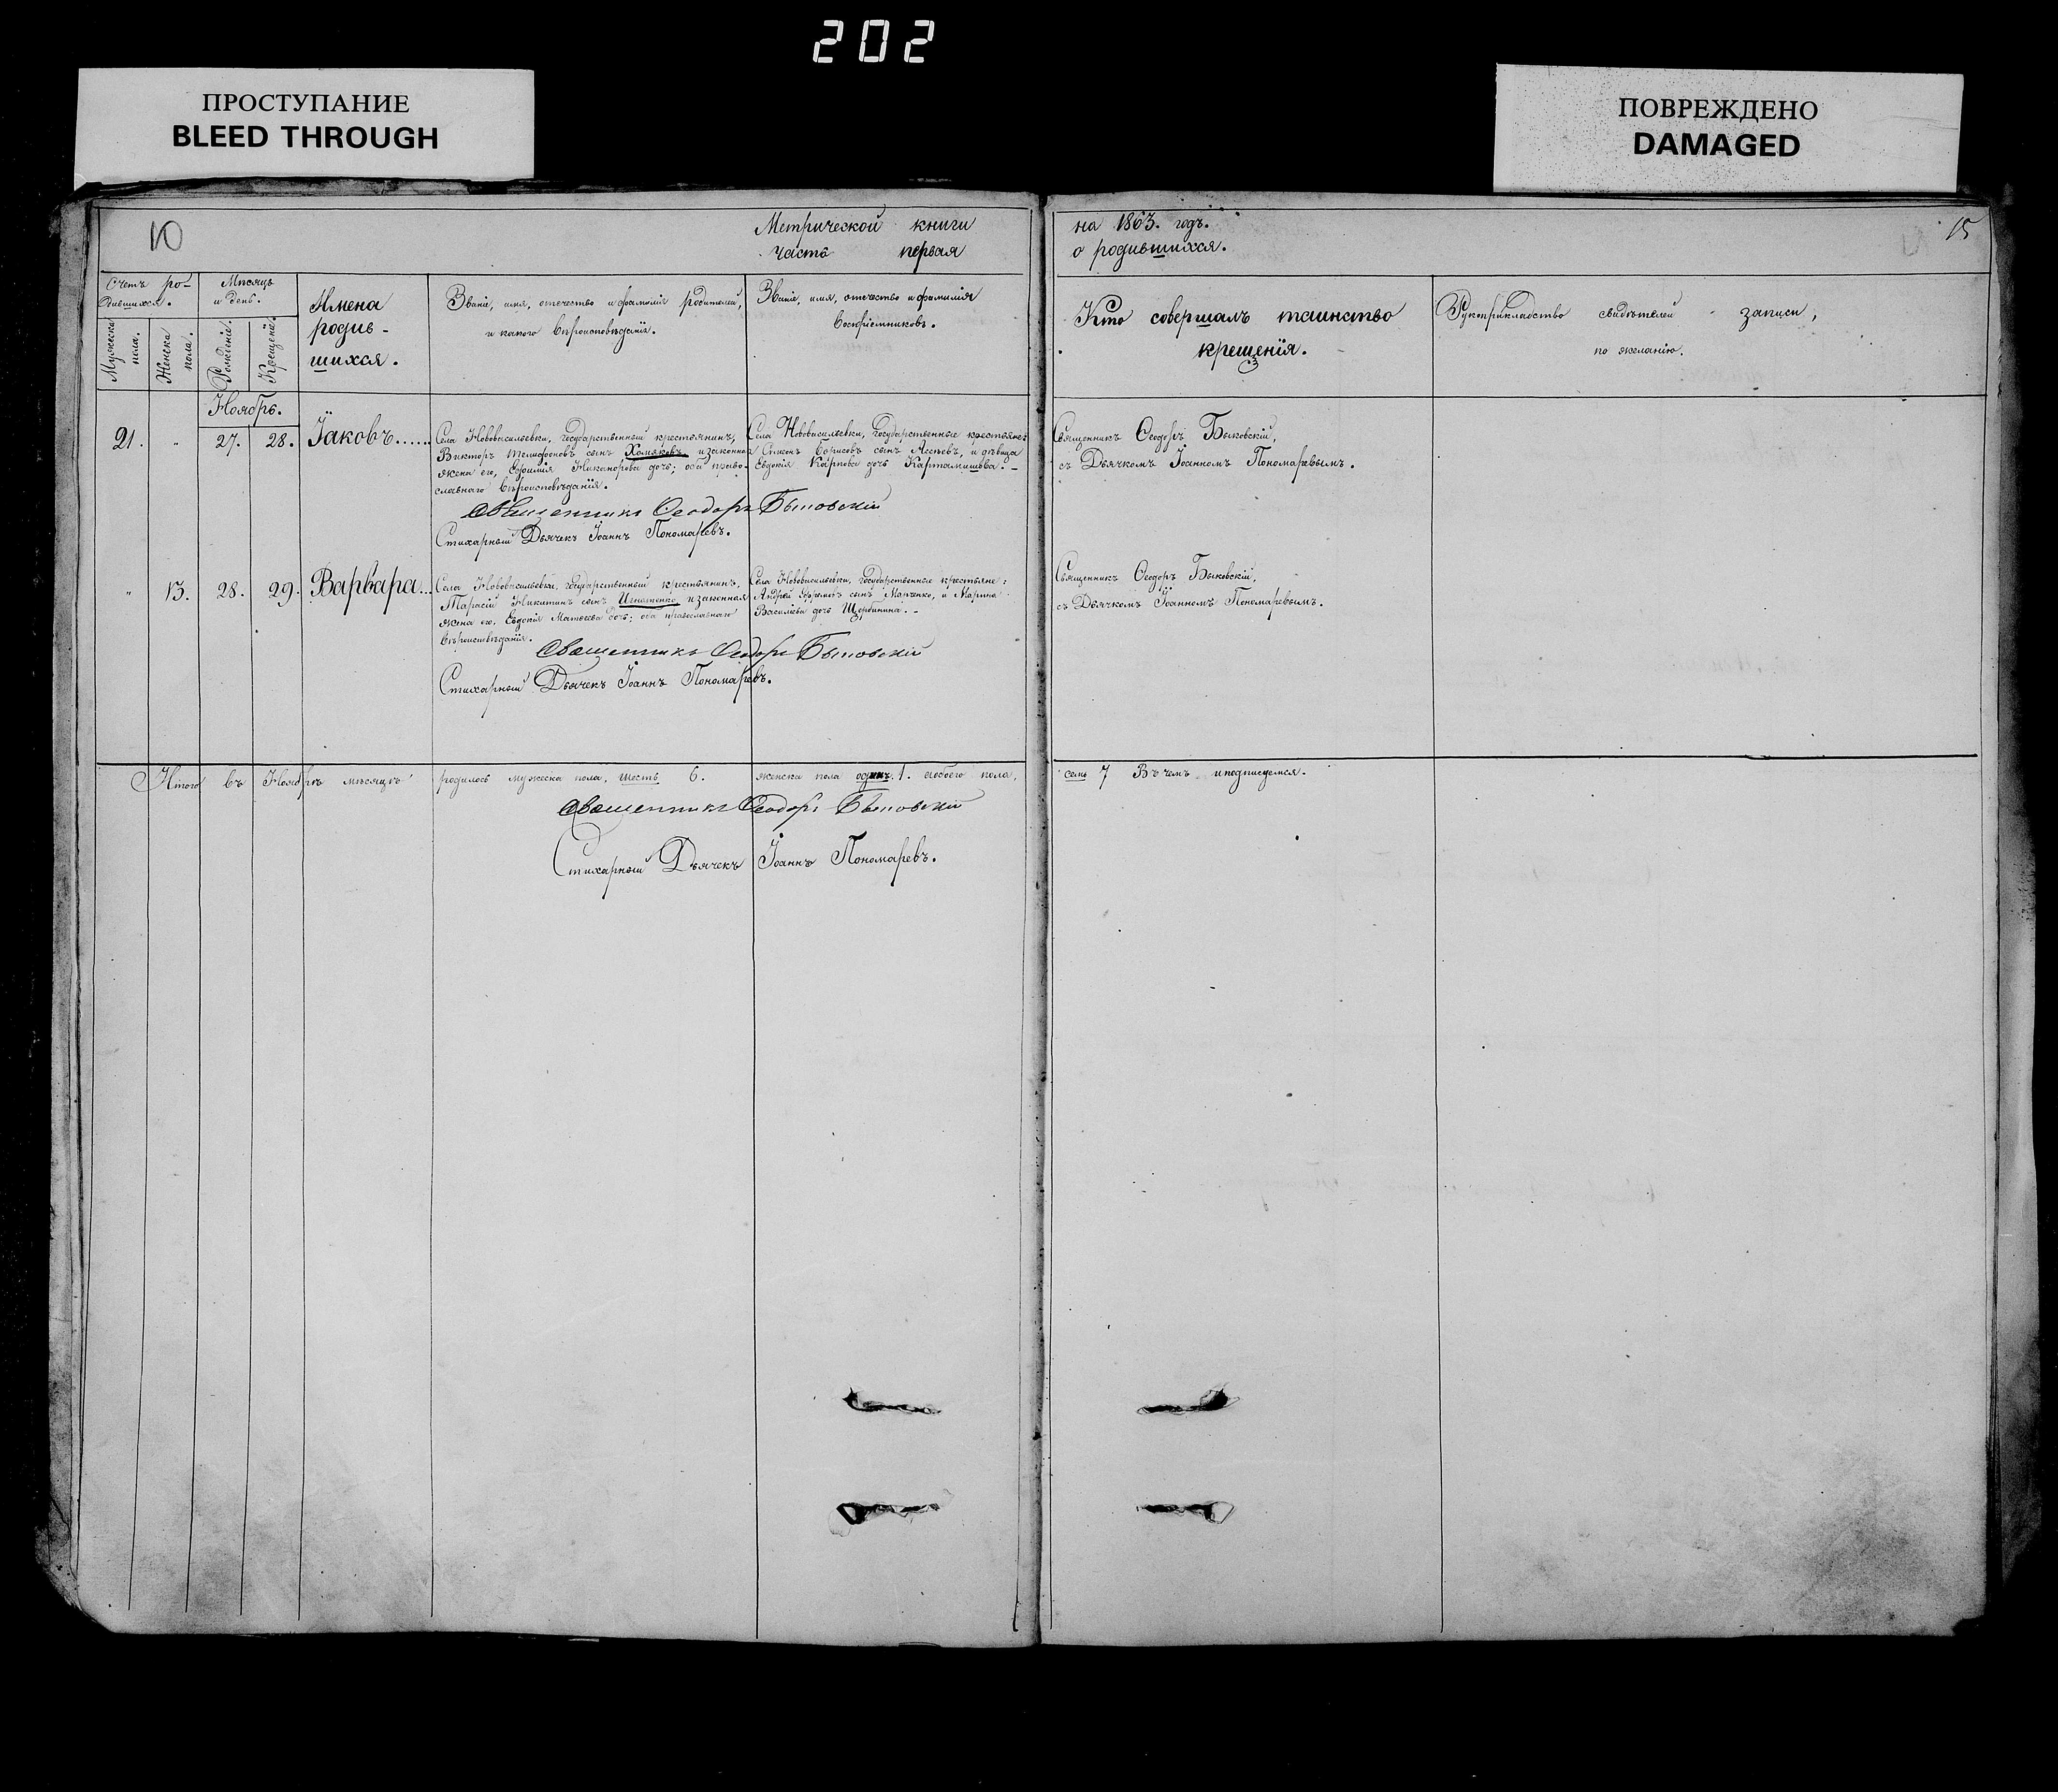 202
ПРОСТУПАНИЕ
BLEED THROUGH
ПОВРЕЖДЕНО
DAMAGED
10
Метрической книги
часть первая
на 1863. годъ.
о родившихся.
15
Счетъ ро-
дившихся.
Мужеска
пола.
Женска
пола.
Мѣсяцъ
и день.
Рожденія.
Крещенія.
Имена
родив-
шихся.
Званіе, имя, отечество и фамилія родителей,
и какого вѣроисповѣданія.
Званіе, имя, отечество и фамилія
воспріемниковъ.
Кто совершалъ таинство
крещенія.
Рукоприкладство свидѣтелей записи,
по желанію.
Ноябрь.
21. " 27. 28. Іаковъ......
Села Нововасильевки, государственный крестьянинъ,
Викторъ сынъ Хомяковъ, и законная
жена его, Никанорова дочь; оба право-
славнаго вѣроисповѣданія.
Села Нововасильевки, Государственные крестьяне:
Борисовъ сынъ и дѣвица
Евдокія Карпова дочь Картамишова. -
Священникъ Ѳеодоръ Быковскій,
съ Дьячкомъ Іоанномъ Пономаревымъ.
Священникъ Ѳеодоръ Быковскій
Стихарный Дьячекъ Іоаннъ Пономаревъ.
" 13. 28. 29. Варвара...
Села Нововасильевки, государственный крестьянинъ,
Тарасій Никитинъ сынъ Игнатенко, и законная
жена его, Евдокія Матвеева дочь; оба православнаго
вѣроисповѣданія.
Села Нововасильевки, государственные крестьяне:
Андрей сынъ Марченко, и Марина
Васильева дочь Щербинина. -
Священникъ Ѳеодоръ Быковскій,
съ Дьячкомъ Іоанномъ Пономаревымъ.
Священникъ Ѳеодоръ Быковскій
Стихарный Дьячекъ Іоаннъ Пономаревъ.
Итого въ Ноябрѣ мѣсяцѣ родилось мужеска пола, шесть 6. женска пола одинъ. 1. обоего пола, семь 7 Въ чемъ и подписуемся.
Священникъ Ѳеодоръ Быковскій
Стихарный Дьячекъ Іоаннъ Пономаревъ.